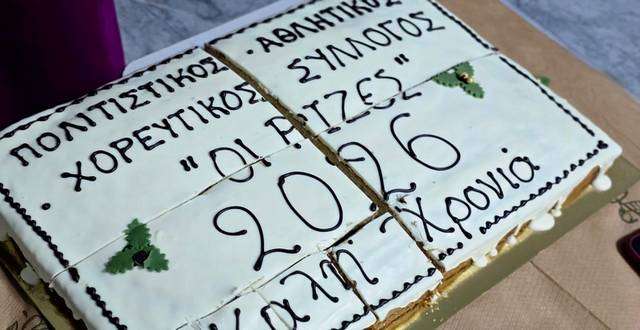 ΠΟΛΙΤΙΣΤΙΚΟΣ · ΑΘΛΗΤΙΚΟΣ
· ΧΟΡΕΥΤΙΚΟΣ ΣΥΛΛΟΓΟΣ
"ΟΙ ΡΙΖΕΣ"
2026
Καλή Χρονιά